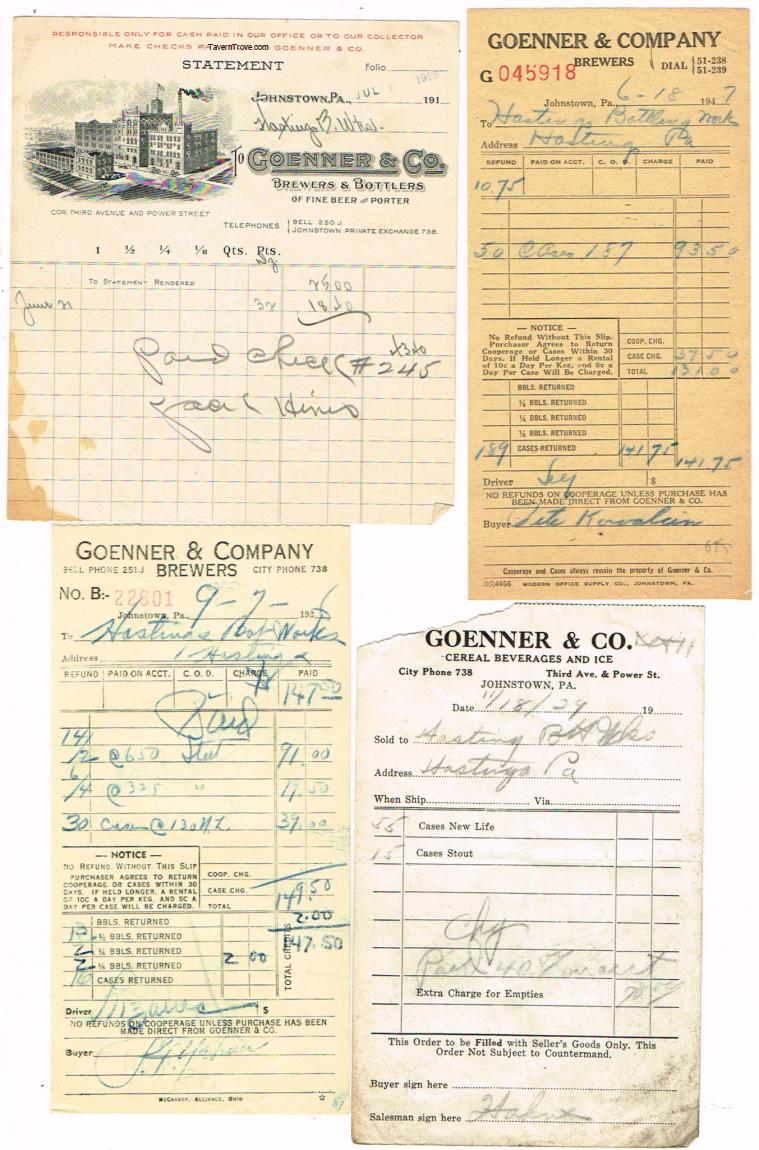 RESPONSIBLE ONLY FOR CASH PAID IN OUR OFFICE OR TO OUR COLLECTOR
MAKE CHECKS PA GOENNER & CO.
TavernTrove.com
STATEMENT
Folio
1920
JOHNSTOWN, PA., JUL 1 191
Hastings B. Wks.
TO GOENNER & CO.
BREWERS & BOTTLERS
OF FINE BEER AND PORTER
COR. THIRD AVENUE AND POWER STREET
TELEPHONES { BELL 250 J.
JOHNSTOWN PRIVATE EXCHANGE 738.
1 ½ ¼ ⅛ Qts. Pts.
TO STATEMENT RENDERED 25.00
June 21 32 18.40
Paid check #245
GOENNER & COMPANY
BREWERS
DIAL { 51-238
51-239
G 045918
Johnstown, Pa. 6-18 1947
To Hastings Bottling Works
Address Hastings Pa
REFUND PAID ON ACCT. C. O. D. CHARGE PAID
10.75
50 Cases 187 93.50
— NOTICE —
No Refund Without This Slip.
Purchaser Agrees to Return
Cooperage or Cases Within 30
Days. If Held Longer a Rental
of 10c a Day Per Keg, and 5c a
Day Per Case Will Be Charged.
COOP. CHG.
CASE CHG. 37.50
TOTAL 131.00
BBLS. RETURNED
½ BBLS. RETURNED
¼ BBLS. RETURNED
⅛ BBLS. RETURNED
189 CASES RETURNED 141.75 141.75
Driver $
NO REFUNDS ON COOPERAGE UNLESS PURCHASE HAS
BEEN MADE DIRECT FROM GOENNER & CO.
Buyer Pete
Cooperage and Cases always remain the property of Goenner & Co.
4956 MODERN OFFICE SUPPLY CO., JOHNSTOWN, PA.
GOENNER & COMPANY
BELL PHONE 251-J BREWERS CITY PHONE 738
No. B:- 22801
Johnstown, Pa., 9-7- 192
To Hastings Bot Works
Address Hastings
REFUND PAID ON ACCT. C. O. D. CHARGE PAID
147.50
Paid
14/
/2 @ 650 91.00
6/
/4 @ 325 " 19.50
30 Cases @ 130 39.00
— NOTICE —
NO REFUND WITHOUT THIS SLIP
PURCHASER AGREES TO RETURN
COOPERAGE OR CASES WITHIN 30
DAYS. IF HELD LONGER, A RENTAL
OF 10C A DAY PER KEG, AND 5C A
DAY PER CASE WILL BE CHARGED.
COOP. CHG.
CASE CHG.
TOTAL 149.50
2.00
147.50
BBLS. RETURNED
½ BBLS. RETURNED
¼ BBLS. RETURNED
⅛ BBLS. RETURNED 2 00
CASES RETURNED
TOTAL CREDITS
Driver $
NO REFUNDS ON COOPERAGE UNLESS PURCHASE HAS BEEN
MADE DIRECT FROM GOENNER & CO.
Buyer
MCCASKEY, ALLIANCE, OHIO
GOENNER & CO.
CEREAL BEVERAGES AND ICE
City Phone 738 Third Ave. & Power St.
JOHNSTOWN, PA.
Date 11/18/29 19
Sold to Hasting Bot Wks
Address Hastings Pa
When Ship Via
55 Cases New Life
15 Cases Stout
Chg
Extra Charge for Empties
This Order to be Filled with Seller's Goods Only. This
Order Not Subject to Countermand.
Buyer sign here
Salesman sign here